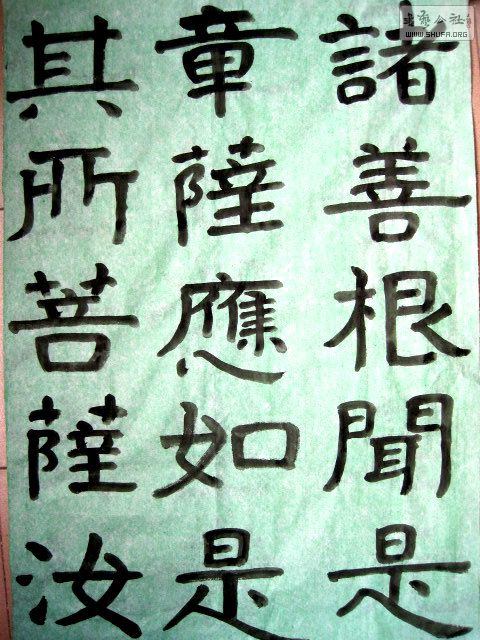 諸善根聞是
章薩應如是
其所菩薩汝
WWW.SHUFA.ORG